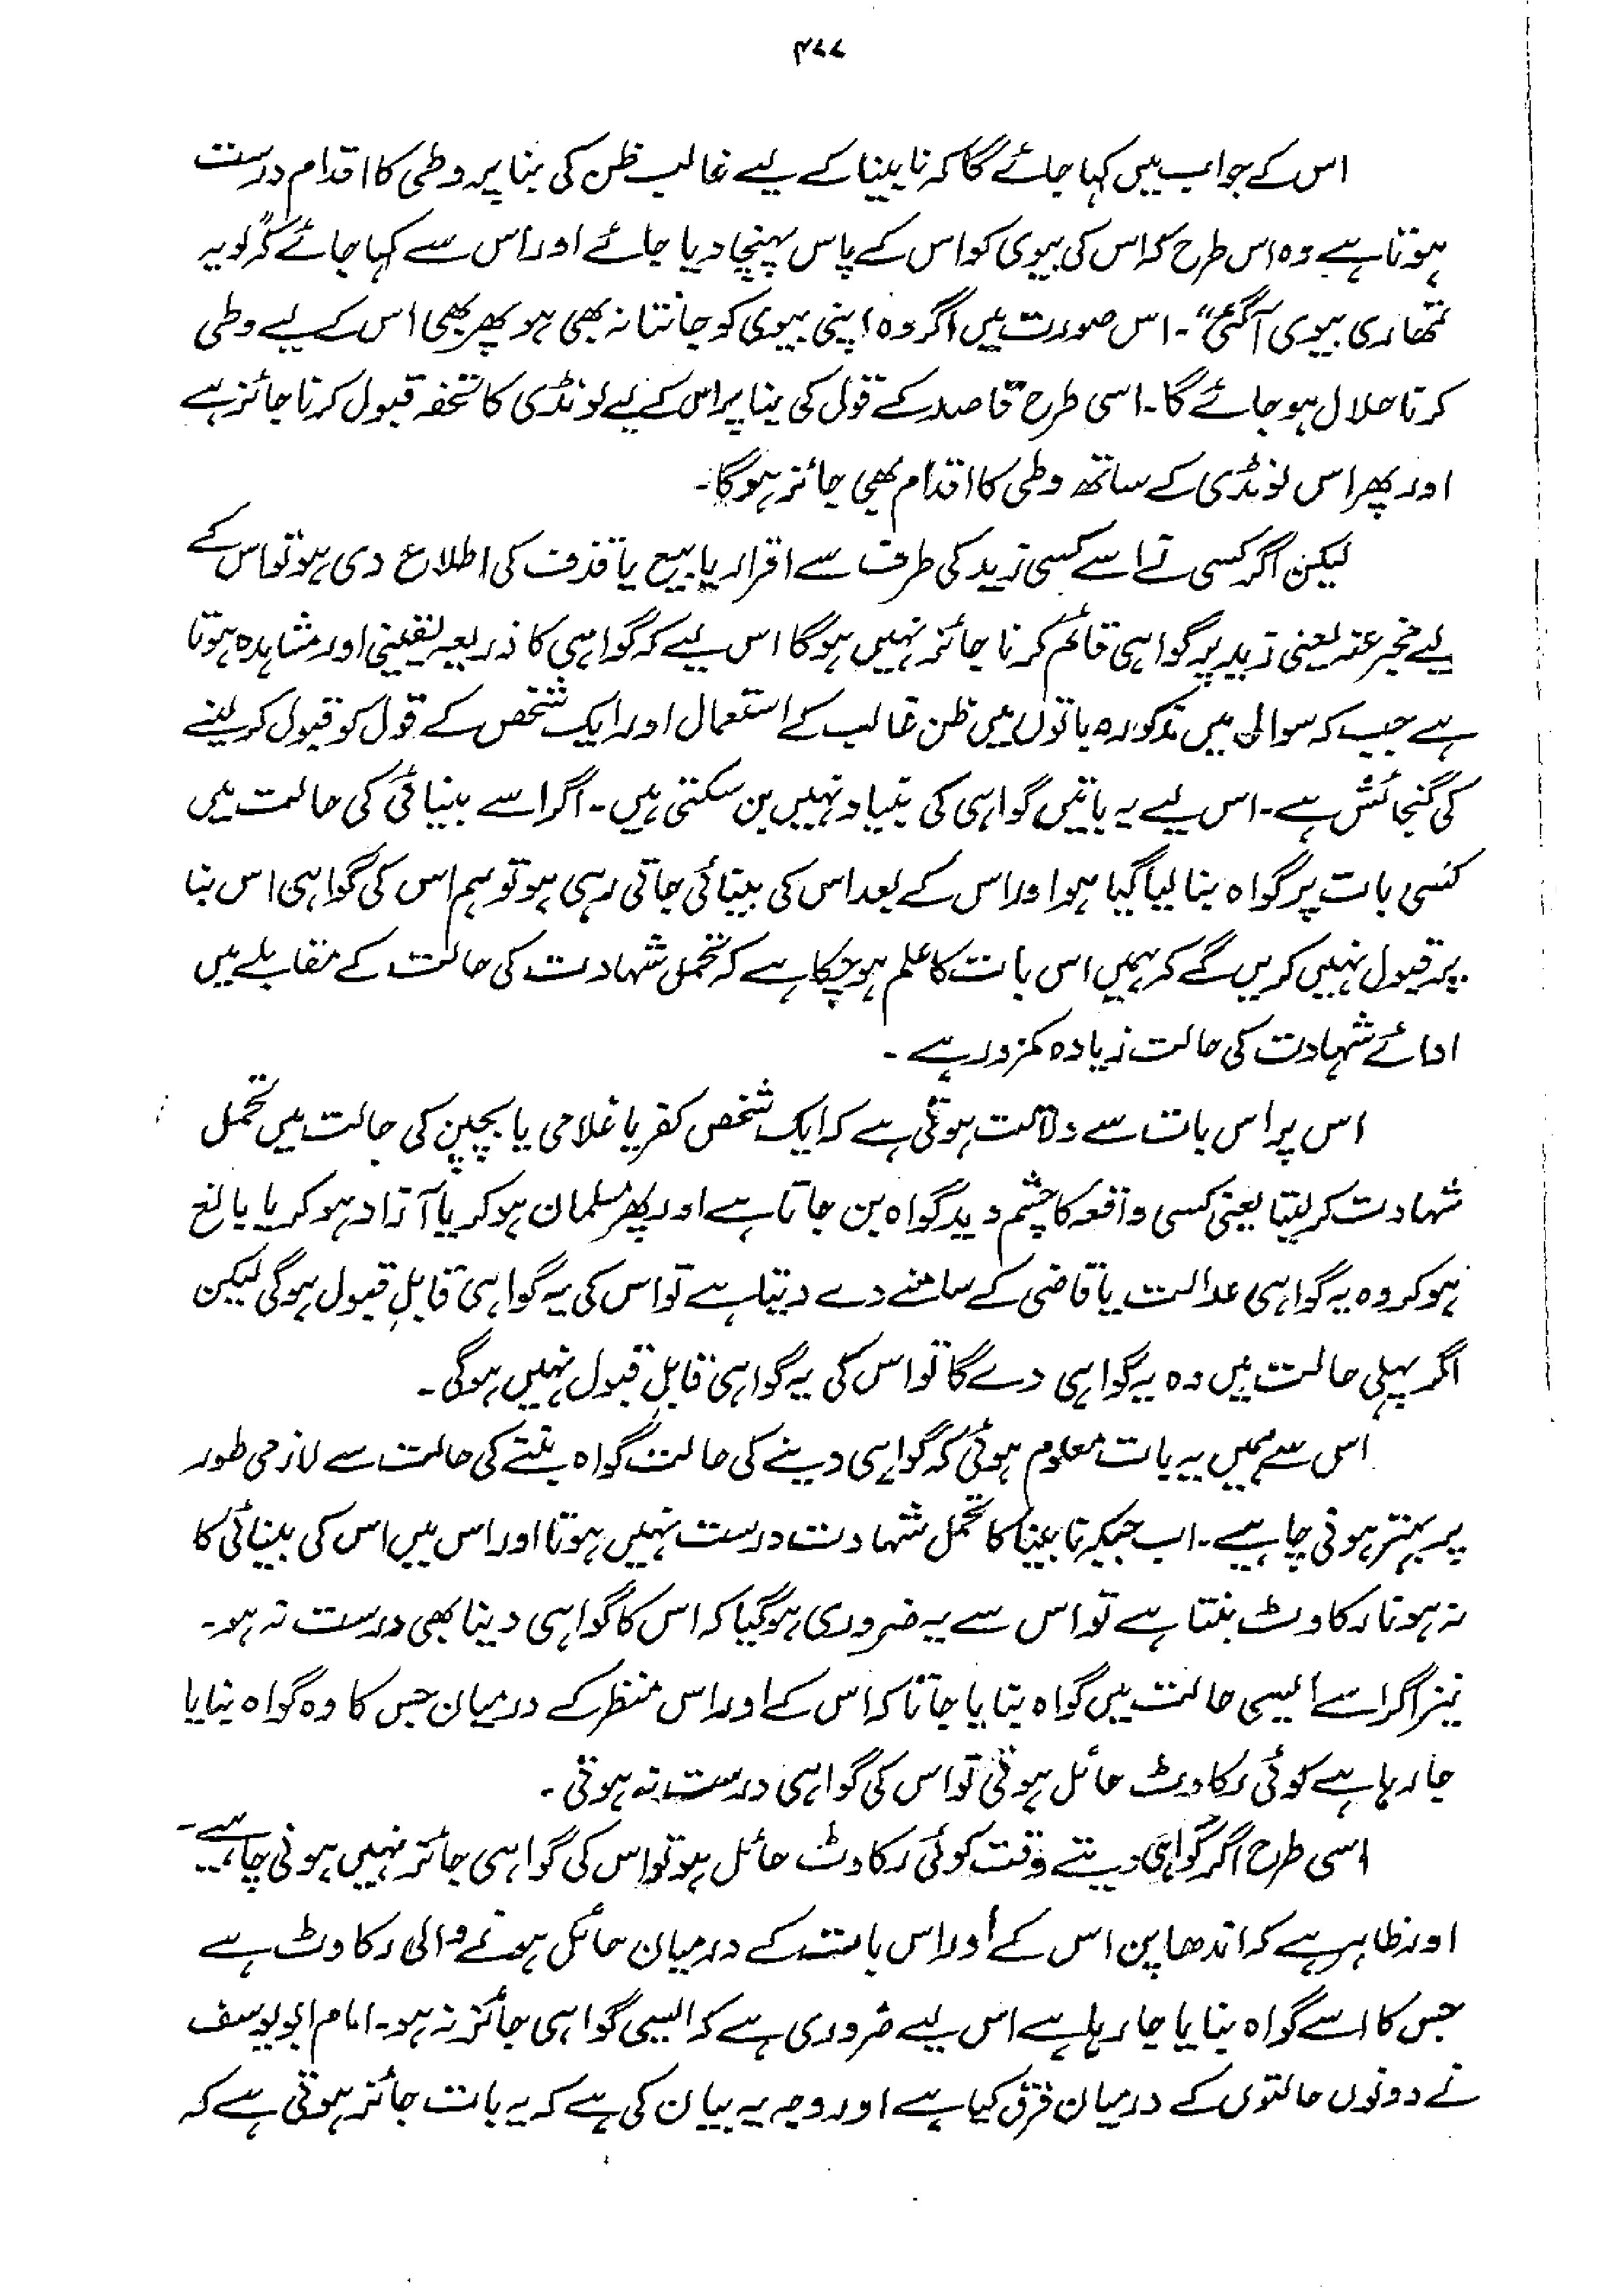 ۴۷۷
اس کے جواب میں کہا جائے گا کہ نابینا کے لیے غالب ظن کی بنا پر وطی کا اقدام درست
ہوتا ہے وہ اس طرح کہ اس کی بیوی کو اس کے پاس پہنچا دیا جائے اور اس سے کہا جائے کہ "لو یہ
تمھاری بیوی آگئی"۔ اس صورت میں اگر وہ اپنی بیوی کو جانتا نہ بھی ہو پھر بھی اس کے لیے وطی
کرنا حلال ہو جائے گا۔ اسی طرح قاصد کے قول کی بنا پر اس کے لیے لونڈی کا تحفہ قبول کرنا جائز ہے
اور پھر اس لونڈی کے ساتھ وطی کا اقدام بھی جائز ہوگا۔
لیکن اگر کسی نے اسے کسی زید کی طرف سے اقرار یا بیع یا قذف کی اطلاع دی ہو تو اس کے
لیے مخبر عنہ یعنی زید پر گواہی قائم کرنا جائز نہیں ہوگا اس لیے کہ گواہی کا ذریعہ یقینی اور مشاہدہ ہوتا
ہے جب کہ سوال میں مذکورہ باتوں میں ظن غالب کے استعمال اور ایک شخص کے قول کو قبول کر لینے
کی گنجائش ہے۔ اس لیے یہ باتیں گواہی کی بنیاد نہیں بن سکتی ہیں۔ اگر اسے بینائی کی حالت میں
کسی بات پر گواہ بنا لیا گیا ہو اور اس کے بعد اس کی بینائی جاتی رہی ہو تو ہم اس کی گواہی اس بنا
پر قبول نہیں کریں گے کہ ہمیں اس بات کا علم ہو چکا ہے کہ تحمل شہادت کی حالت کے مقابلے میں
ادائے شہادت کی حالت زیادہ کمزور ہے۔
اس پر اس بات سے دلالت ہوتی ہے کہ ایک شخص کفر یا غلامی یا بچپن کی حالت میں تحمل
شہادت کر لیتا یعنی کسی واقعہ کا چشم دید گواہ بن جاتا ہے اور پھر مسلمان ہو کر یا آزاد ہو کر یا بالغ
ہو کر وہ یہ گواہی عدالت یا قاضی کے سامنے دے دیتا ہے تو اس کی یہ گواہی قابلِ قبول ہوگی لیکن
اگر پہلی حالت میں وہ یہ گواہی دے گا تو اس کی یہ گواہی قابلِ قبول نہیں ہوگی۔
اس سے ہمیں یہ بات معلوم ہوئی کہ گواہی دینے کی حالت گواہ بننے کی حالت سے لازمی طور
پر بہتر ہونی چاہیے۔ اب جبکہ نابینا کا تحمل شہادت درست نہیں ہوتا اور اس میں اس کی بینائی کا
نہ ہونا رکاوٹ بنتا ہے تو اس سے یہ ضروری ہوگیا کہ اس کا گواہی دینا بھی درست نہ ہو۔
نیز اگر اسے ایسی حالت میں گواہ بنایا جاتا کہ اس کے اور اس منظر کے درمیان جس کا وہ گواہ بنایا
جا رہا ہے کوئی رکاوٹ حائل ہوتی تو اس کی گواہی درست نہ ہوتی۔
اسی طرح اگر گواہی دیتے وقت کوئی رکاوٹ حائل ہو تو اس کی گواہی جائز نہیں ہونی چاہیے۔
اور ظاہر ہے کہ اندھا پن اس کے اور اس بات کے درمیان حائل ہونے والی رکاوٹ ہے
جس کا اسے گواہ بنایا جا رہا ہے اس لیے ضروری ہے کہ ایسی گواہی جائز نہ ہو۔ امام ابو یوسف
نے دونوں حالتوں کے درمیان فرق کیا ہے اور وجہ یہ بیان کی ہے کہ یہ بات جائز ہوتی ہے کہ